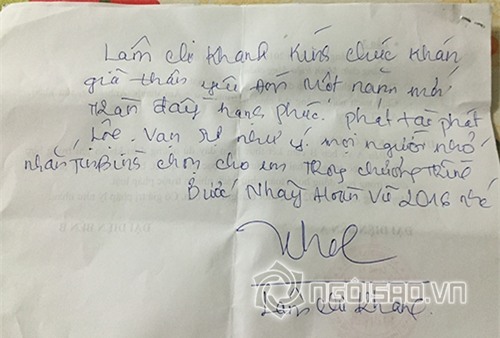 Lâm chi Khanh Kính chúc khán
giả thân yêu đón Một năm mới
tràn đầy hạnh phúc. phát tài phát
Lộc. Vạn sự như ý. mọi người nhớ
nhắn tin Bình chọn cho em Trong chương trình
Bước Nhảy Hoàn Vũ 2016 nhé
NGÔISAO.VN
Lâm chi Khanh.